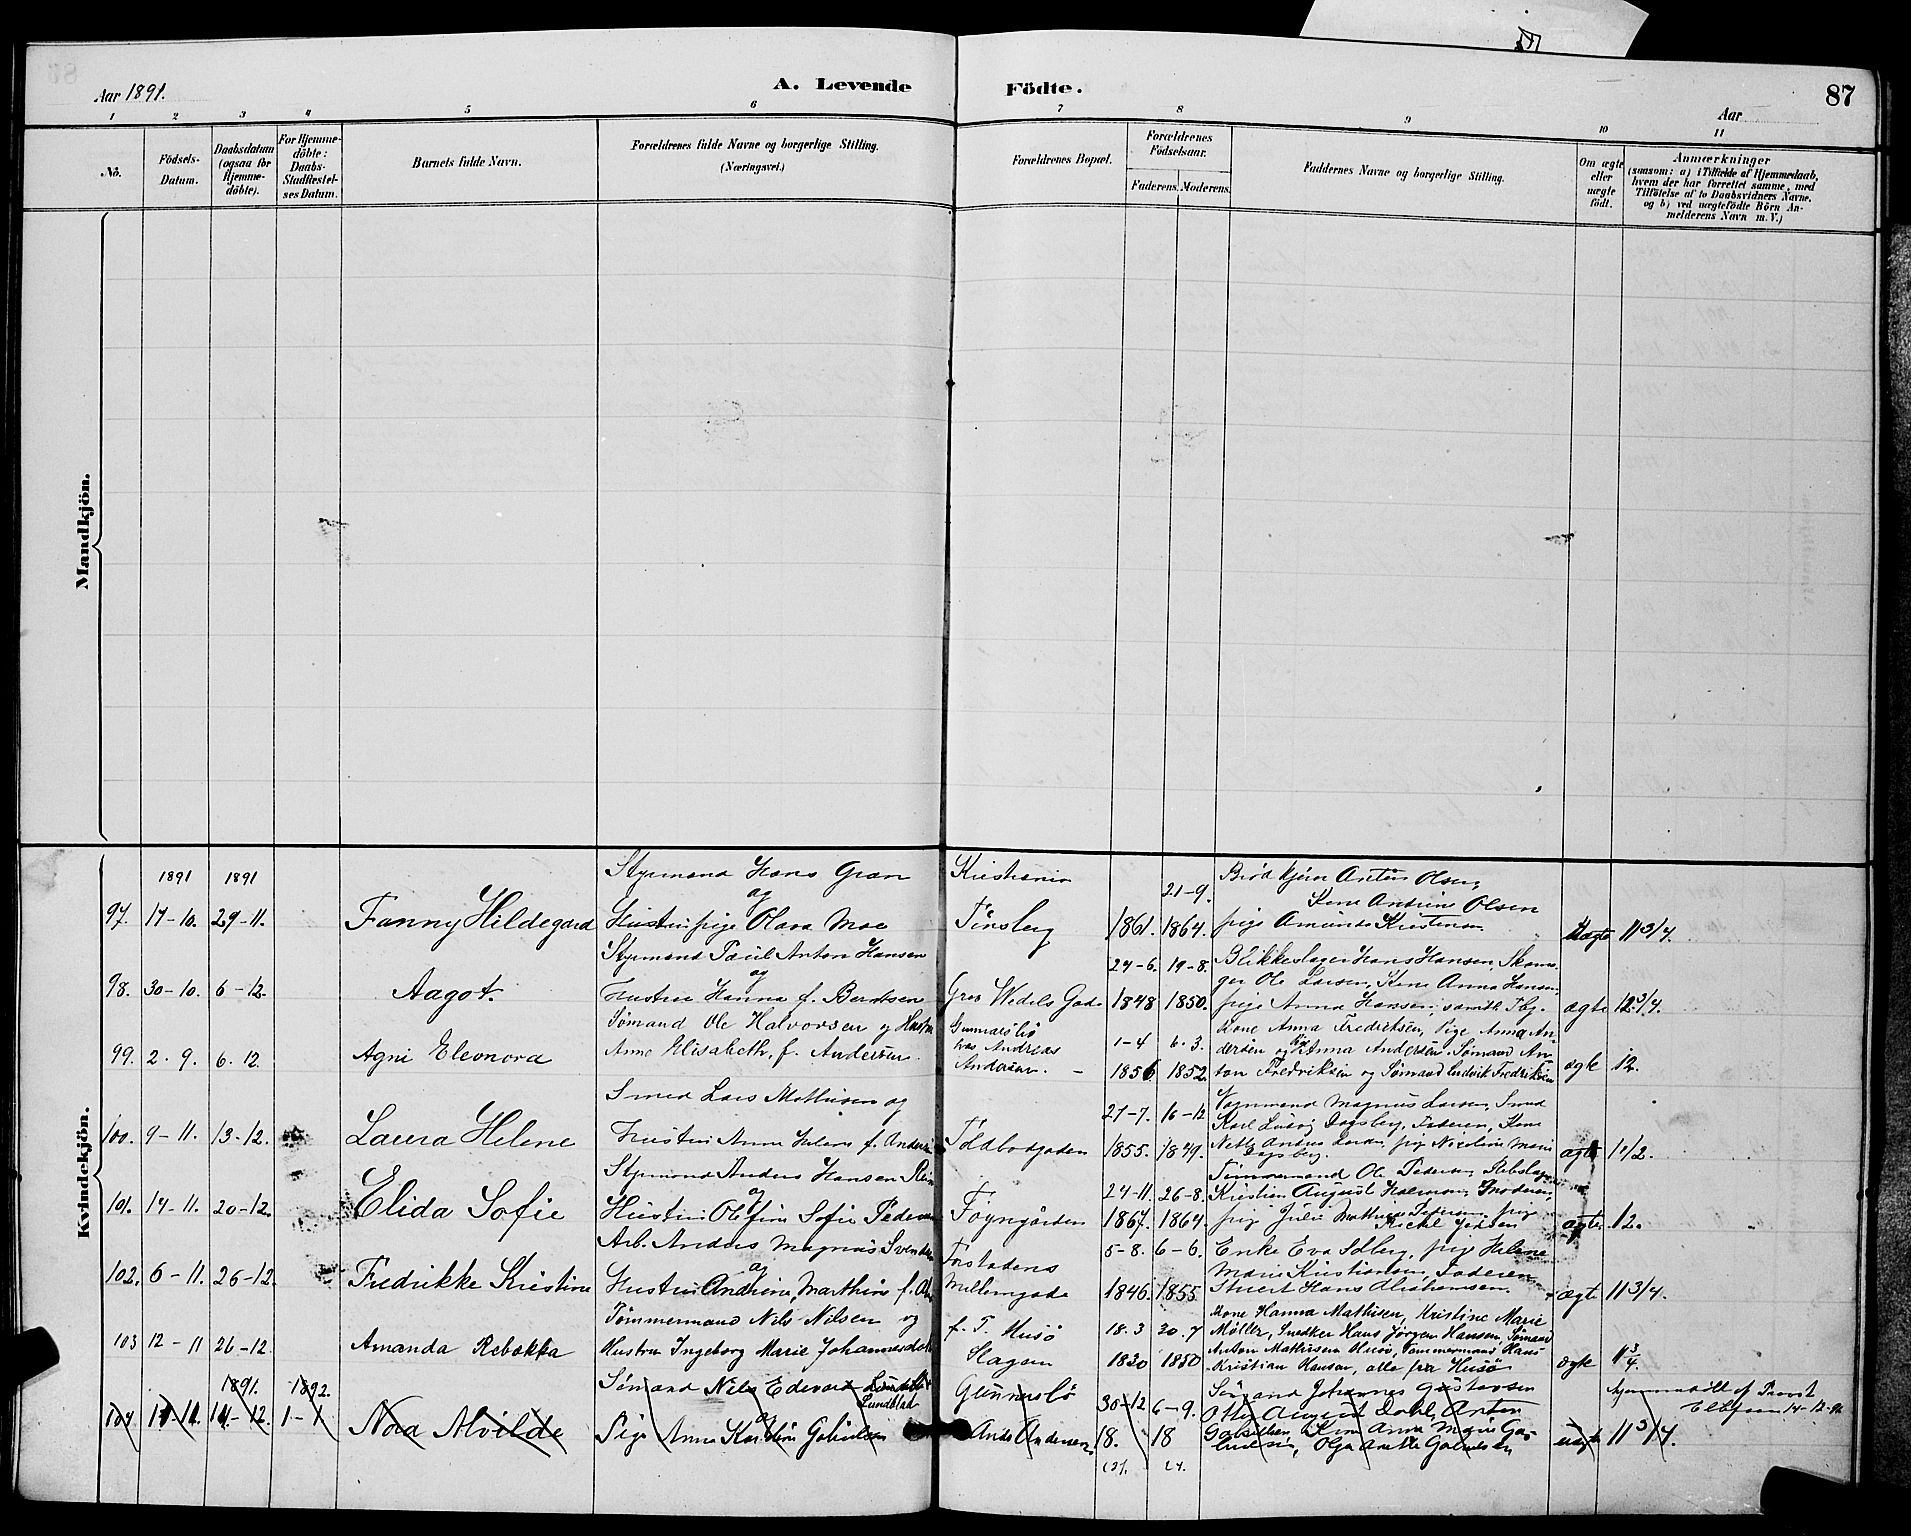 Aar 1891.
A. Levende Födte.
Aar
87
1 2 3 4 5 6 7 8 9 10 11
No.
Födsels-
Datum.
Daabsdatum
(ogsaa for
Hjemme-
döbte).
For Hjemme-
döbte:
Daabs-
Stadfæstel-
ses Datum.
Barnets fulde Navn.
Forældrenes fulde Navne og borgerlige Stilling.
(Næringsvei.)
Forældrenes Bopæl.
Forældrenes
Födselsaar.
Faderens. Moderens.
Faddernes Navne og borgerlige Stilling.
Om ægte
eller
uægte
födt.
Anmærkninger
(saasom: a) i Tilfælde af Hjemmedaab,
hvem der har forrettet samme, med
Tilföielse af to Daabsvidners Navne,
og b) ved uægtefödte Börn An-
melderens Navn m. V.)
Mandkjön.
Kvindekjön.
1891 1891
97. 17-10. 29-11. Fanny Hildegard
Styrmand Hans Gran
og
pige Olava Moe
Kristiania
Tönsberg
21-9.
1861. 1864.
Anton Olsen,
Kone Andrine Olsen
pige Amunda Kristensen
Uægte 11 3/4.
98. 30-10. 6-12. Aagot.
Styrmand Paul Anton Hansen
og
Hustru Hanna f. Berntsen
Grev Wedels Gade
24-6. 19-8.
1848 1850.
Blikkeslager Hans Hansen, Skoma-
ger Ole Larsen, Kone Anna Hansen,
pige Anna Hansen, samtl. Tbg.
ægte 12 3/4.
99. 2-9. 6-12. Agni Eleonora
Sömand Ole Halvorsen og Hustru
Anne Elisabeth, f. Andersen
Gunnarsbö
hos Andreas
Andersen.
1-4 6-3.
1856 1852.
Kone Anna Fredriksen, Pige Anna An-
dersen og Anna Andersen. Sömand An-
ton Fredriksen og Sömand Ludvik Fredriksen
ægte 12.
100. 9-11. 13-12. Laura Helene
Smed Lars Mathisen og
Hustru Anne Helene f. Andersen
Toldbodgaden
27-7. 16-12
1855. 1849.
Vognmand Magnus Larsen, Smed
Karl Ludvig Dagsberg, Faderen, Kone
ægte 12.
101. 14-11. 20-12. Elida Sofie
Styrmand Anders Hansen
og
Hustru Olefine Sofie Pedersen
Föyngården
24-11. 26-8.
1867. 1864.
Tömmermand Ole Pedersen,
Kristian August Halmann, Moderen,
pige Julie Mathea Pedersen, pige
ægte 12.
102. 6-11. 26-12. Fredrikke Kristine
Arb. Anders Magnus Svendsen
og
Hustru Andrine Marthine f.
Forstadens
Mellemgade
5-8. 6-6.
1846. 1855
Enke Eva Solberg, pige Helene
Marie Kristiansen, Faderen
Stuert Hans Abrahamsen.
ægte 11 3/4.
103 12-11 26-12. Amanda Rebekka
Tömmermand Nils Nilsen og
Hustru Ingeborg Marie Johannesdatter
f. T. Husö
Slagen
18.3 20.7
1820 1850
Kone Hanna Mathisen, Kristine Marie
Möller, Snedker Hans Jörgen Hansen, Sömand
Anton Mathisen Husö, Tömmermand Hans
Kristian Hansen, alle fra Husö
ægte 11 3/4.
1891. 1892.
104 11-11. 14-12. 1-1 Nora Alvilde
Sömand Nils Edevard
Lundblad
og
Pige Anna
Gunnarsbö
Anders Andersen
30-12 6-9.
18. 18
Sömand Johannes Gustavsen
Otto August Dahl, Anton
Kone Anna Marie
Olga
uægte 11 3/4.
Hjemmedöbt af Provst
14-12-91.